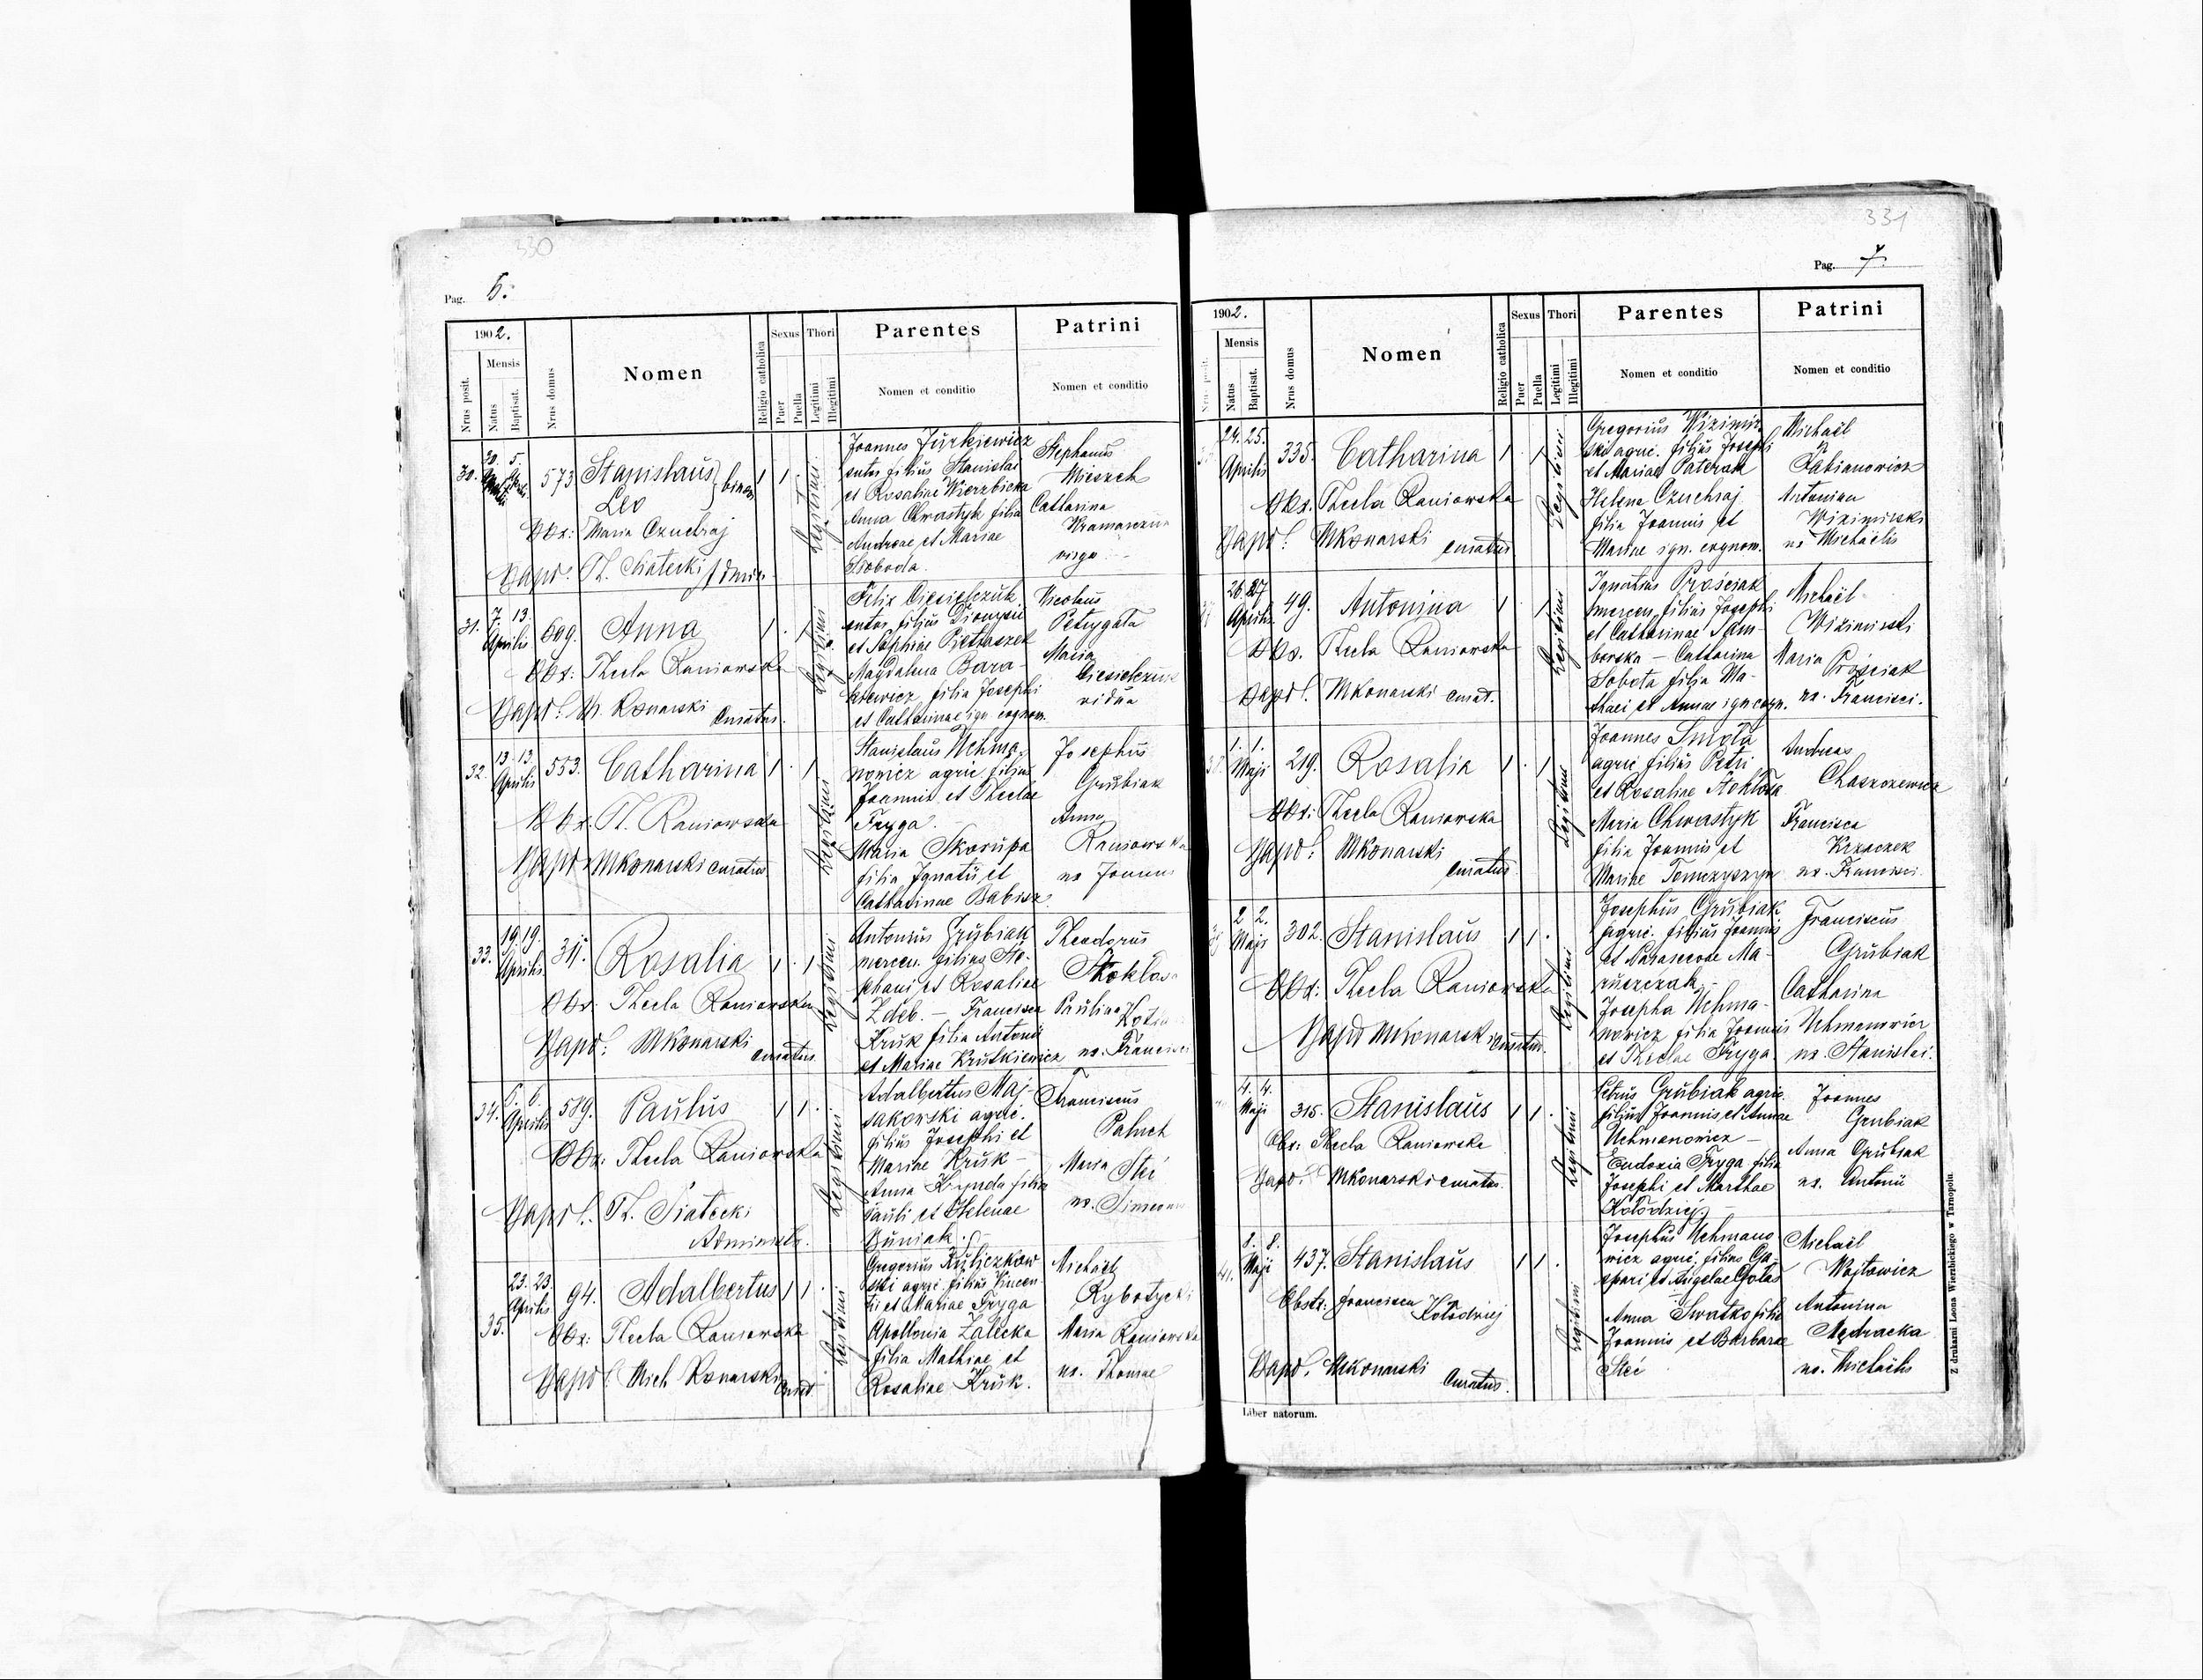 330
Pag. 6.
1902.
Nrus posit.
Mensis
Natus
Baptisat.
Nrus domus
Nomen
Religio catholica
Sexus
Puer
Puella
Thori
Legitimi
Illegitimi
Parentes
Nomen et conditio
Patrini
Nomen et conditio
30.
30. 5.
573
Stanislaus
Leo
binom
1 1 .
Legitimi
Obs: Maria Czuchraj
Bapt:
Joannes Jurkiewicz
sutor filius Stanislai
et Rosaliae Wierzbicka
Anna Chwastyk filia
Andreae et Mariae
Sloboda.
Stephanus
Mieszek
Catharina
Kramarczuk
virgo
31.
7. 13.
Aprilis
609.
Anna
1 . 1
Legitimi
Obs: Thecla Raniowska
Bapt: M. Konarski Curatus.
Felix Ciesielczuk
sutor filius Dionysii
et Sophiae Pietraszek
Magdalena Bara-
kiewicz filia Josephi
et Catharinae ign cognom.
Nicolaus
Petrygata
Maria
Ciesielczuk
vidua
32.
13. 13.
Aprilis
553.
Catharina
1 . 1
Legitimi
Obs. T. Raniowska
Bapt MKonarski curatus.
Stanislaus Uchma-
nowicz agric filius
Joannis et Theclae
Fryga. -
Maria Skorupa
filia Ignatii et
Catharinae Babisz.
Josephus
Grubiak
Anna
Raniowska
ux Joannis
33.
19. 19.
Aprilis
311.
Rosalia
1 . 1
Legitimi
Obs: Thecla Raniowska
Bapt: MKonarski
curatus.
Antonius Grubiak
mercen. filius Ste-
phani et Rosaliae
Zdeb. - Francisca
Kruk filia Antonii
et Mariae Krutkiewicz
Theodorus
Stoklosa
Paulina
ux. Francisci
34.
6. 6.
Aprilis
589.
Paulus
1 1 .
Legitimi
Obs: Thecla Raniowska
Bapt. T. Siatecki
Administr.
Adalbertus Maj-
sakowski agric.
filius Josephi et
Mariae Kruk -
Anna filia
Pauli et Helenae
Buniak.
Franciscus
Paluch
Maria Steć
ux. Simeonis
35.
23. 23.
Aprilis
94.
Adalbertus
1 1 .
Legitimi
Obs: Thecla Raniowska
Bapt. Mich Konarski
Curat
Gregorius Kuliczkow
ski agric filius Vincen-
tii et Mariae Fryga
Apollonia Zalecka
filia Mathiae et
Rosaliae Kruk.
Michael
Rybotycki
Maria Raniowska
ux. Thomae
331
Pag. 7.
1902.
Nrus posit.
Mensis
Natus
Baptisat.
Nrus domus
Nomen
Religio catholica
Sexus
Puer
Puella
Thori
Legitimi
Illegitimi
Parentes
Nomen et conditio
Patrini
Nomen et conditio
24. 25.
Aprilis
335.
Catharina
1 . 1
Legitimi
Obs. Thecla Raniowska
Bapt: MKonarski curatus
Gregorius Wizimir-
ski agric. filius Josephi
et Mariae Paterak
Helena Czuchraj
filia Joannis et
Mariae ign. cognom.
Michaël
Fabianowicz
Antonina
Wizimirski
ux Michaëlis
26. 27
Aprilis
49.
Antonina
1 . 1
Legitimi
Obs. Thecla Raniowska
Bapt. MKonarski curat.
Ignatius Prościak
mercen. filius Josephi
et Catharinae Sam-
borska - Catharina
Sobota filia Ma-
thaei et Annae ign cogn.
Michaël
Wizimirski
Maria Prościak
ux. Francisci.
1. 1.
Maji
219.
Rosalia
1 . 1
Legitimi
Obs: Thecla Raniowska
Bapt: MKonarski
curatus
Joannes Smola
agric filius Petri
et Rosaliae Stoklosa
Maria Chwastyk
filia Joannis et
Mariae Tomczyszyn
Andreas
Chaszczewicz
Francisca
Krzaczek
ux. Francisci.
2 2.
Maji
302.
Stanislaus
1 1 .
Legitimi
Obs: Thecla Raniowska
Bapt MKonarski curatus.
Josephus Grubiak
agric. filius Joannis
et Parascevae Ma-
ruszczak -
Josepha Uchma-
nowicz filia Joannis
et Theclae Fryga
Franciscus
Grubiak
Catharina
Uchmanowicz
ux. Stanislai.
4. 4.
Maji
315.
Stanislaus
1 1 .
Legitimi
Obs: Thecla Raniowska
Bapt: MKonarski curatus.
Petrus Grubiak agric.
filius Joannis et Annae
Uchmanowicz -
Eudoxia Fryga filia
Josephi et Marthae
Kołodziej -
Joannes
Grubiak
Anna Grubiak
ux. Antonii
41.
8. 8.
Maji
437.
Stanislaus
1 1 .
Legitimi
Obstr: Francisca Kołodziej
Bapt. MKonarski
Curatus.
Josephus Uchmano
wicz agric. filius Ga-
spari et Angelae Gołas
Anna Swatko filia
Joannis et Barbarae
Steć
Michaël
Wojtowicz
Antonina
Mędracka
ux. Michaëlis
Liber natorum.
Z drukarni Leona Wierzbickiego w Tarnopolu